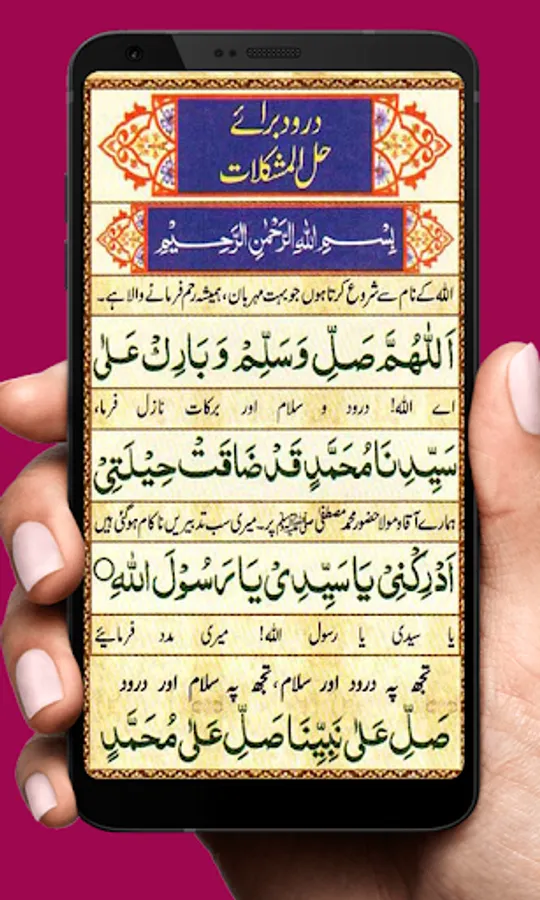 درود برائے
حل المشکلات
بِسْمِ اللهِ الرَّحْمٰنِ الرَّحِيْمِ
اللہ کے نام سے شروع کرتا ہوں جو بہت مہربان، ہمیشہ رحم فرمانے والا ہے۔
اَللّٰهُمَّ صَلِّ وَسَلِّمْ وَبَارِكْ عَلٰى
اے اللہ! درود و سلام اور برکات نازل فرما،
سَيِّدِنَا مُحَمَّدٍ قَدْ ضَاقَتْ حِيْلَتِيْ
ہمارے آقا و مولا حضور محمد مصطفیٰ ﷺ پر۔ میری سب تدبیریں ناکام ہو گئی ہیں
اَدْرِكْنِيْ يَا سَيِّدِيْ يَا رَسُوْلَ اللهِ○
یا سیدی یا رسول اللہ! میری مدد فرمائیے
تجھ پہ درود اور سلام، تجھ پہ سلام اور درود
صَلِّ عَلٰى نَبِيِّنَا صَلِّ عَلٰى مُحَمَّدٍ